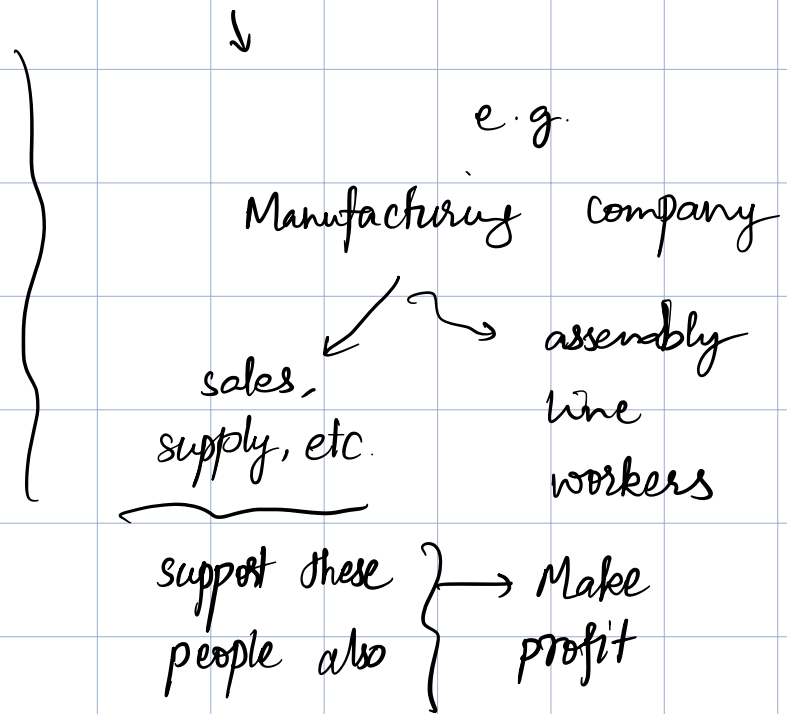 e.g.
Manufacturing company
sales,
supply, etc.
assembly
line
workers
support these
people also
Make
profit